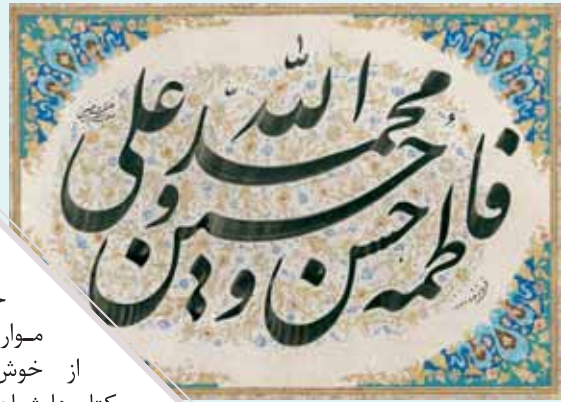 الله
محمد و علی
فاطمه حسن و حسین
از خوش